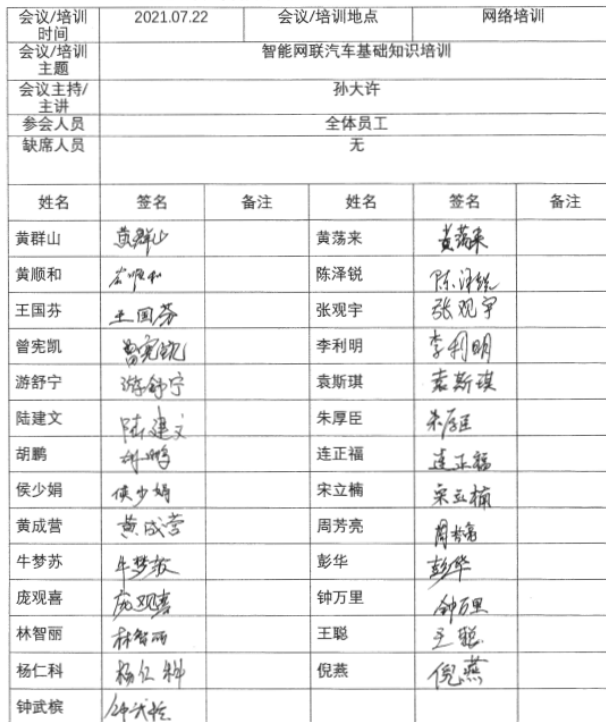 会议/培训时间 2021.07.22 会议/培训地点 网络培训
会议/培训主题 智能网联汽车基础知识培训
会议主持/主讲 孙大许
参会人员 全体员工
缺席人员 无
姓名 签名 备注 姓名 签名 备注
黄群山 黄群山 黄荡来 黄荡来
黄顺和 黄顺和 陈泽锐 陈泽锐
王国芬 王国芬 张观宇 张观宇
曾宪凯 曾宪凯 李利明 李利明
游舒宁 游舒宁 袁斯琪 袁斯琪
陆建文 陆建文 朱厚臣 朱厚臣
胡鹏 胡鹏 连正福 连正福
侯少娟 侯少娟 宋立楠 宋立楠
黄成营 黄成营 周芳亮 周芳亮
牛梦苏 牛梦苏 彭华 彭华
庞观喜 庞观喜 钟万里 钟万里
林智丽 林智丽 王聪 王聪
杨仁科 杨仁科 倪燕 倪燕
钟武槟 钟武槟